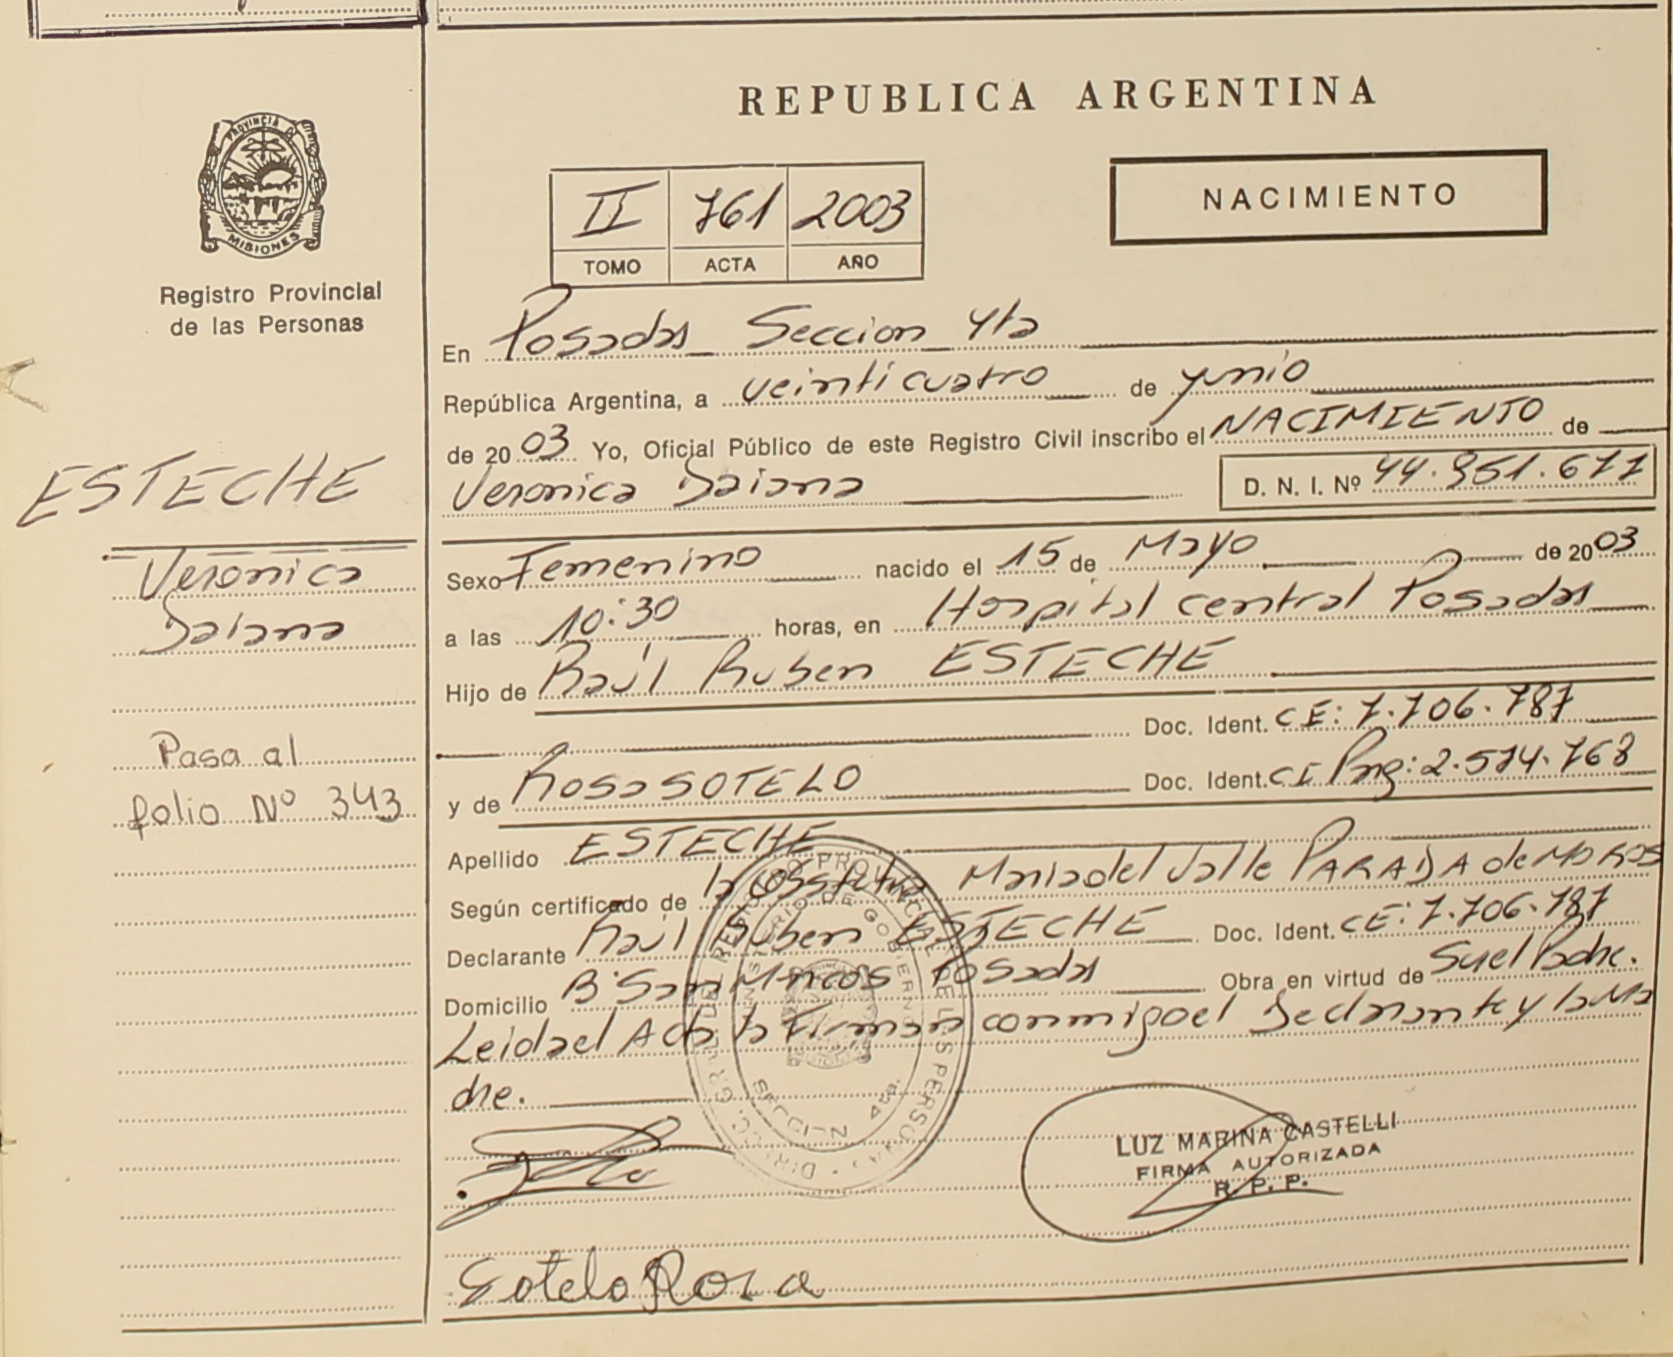 REPUBLICA ARGENTINA
PROVINCIA DE
MISIONES
Registro Provincial
de las Personas
NACIMIENTO
II 761 2003
TOMO ACTA AÑO
ESTECHE
Veronica
Daiana
Pasa al
folio Nº 343
En Posadas Seccion 4ta
República Argentina, a veinticuatro de junio
de 2003 Yo, Oficial Público de este Registro Civil inscribo el NACIMIENTO de
Veronica Daiana D. N. I. Nº 44.951.677
Sexo Femenino nacido el 15 de Mayo de 2003
a las 10:30 horas, en Hospital central Posadas
Hijo de Raúl Ruben ESTECHE
Doc. Ident. CE: 7.706.787
y de Rosa SOTELO Doc. Ident. CI Prg: 2.574.768
Apellido ESTECHE
Según certificado de la Maria del Valle PARADA de MOROS
Declarante Raúl Ruben ESTECHE Doc. Ident. CE: 7.706.787
Domicilio Bº San Marcos Posadas Obra en virtud de Ser el Padre.
Leida el Acta la Firman conmigo el Declarante y la Ma
dre.
DIRECC. GRAL. DEL REGISTRO PROVINCIAL DE LAS PERSONAS
MINISTERIO DE GOBIERNO
SECCION 4ta.
LUZ MARINA CASTELLI
FIRMA AUTORIZADA
R. P. P.
Sotelo Rosa